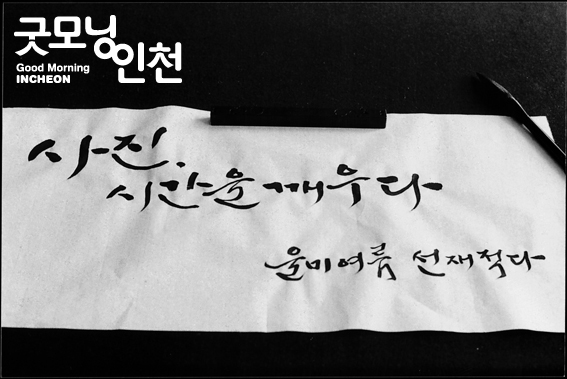 굿모닝
인천
Good Morning
INCHEON
사진,
시간을 깨우다
윤미여름 선재적다